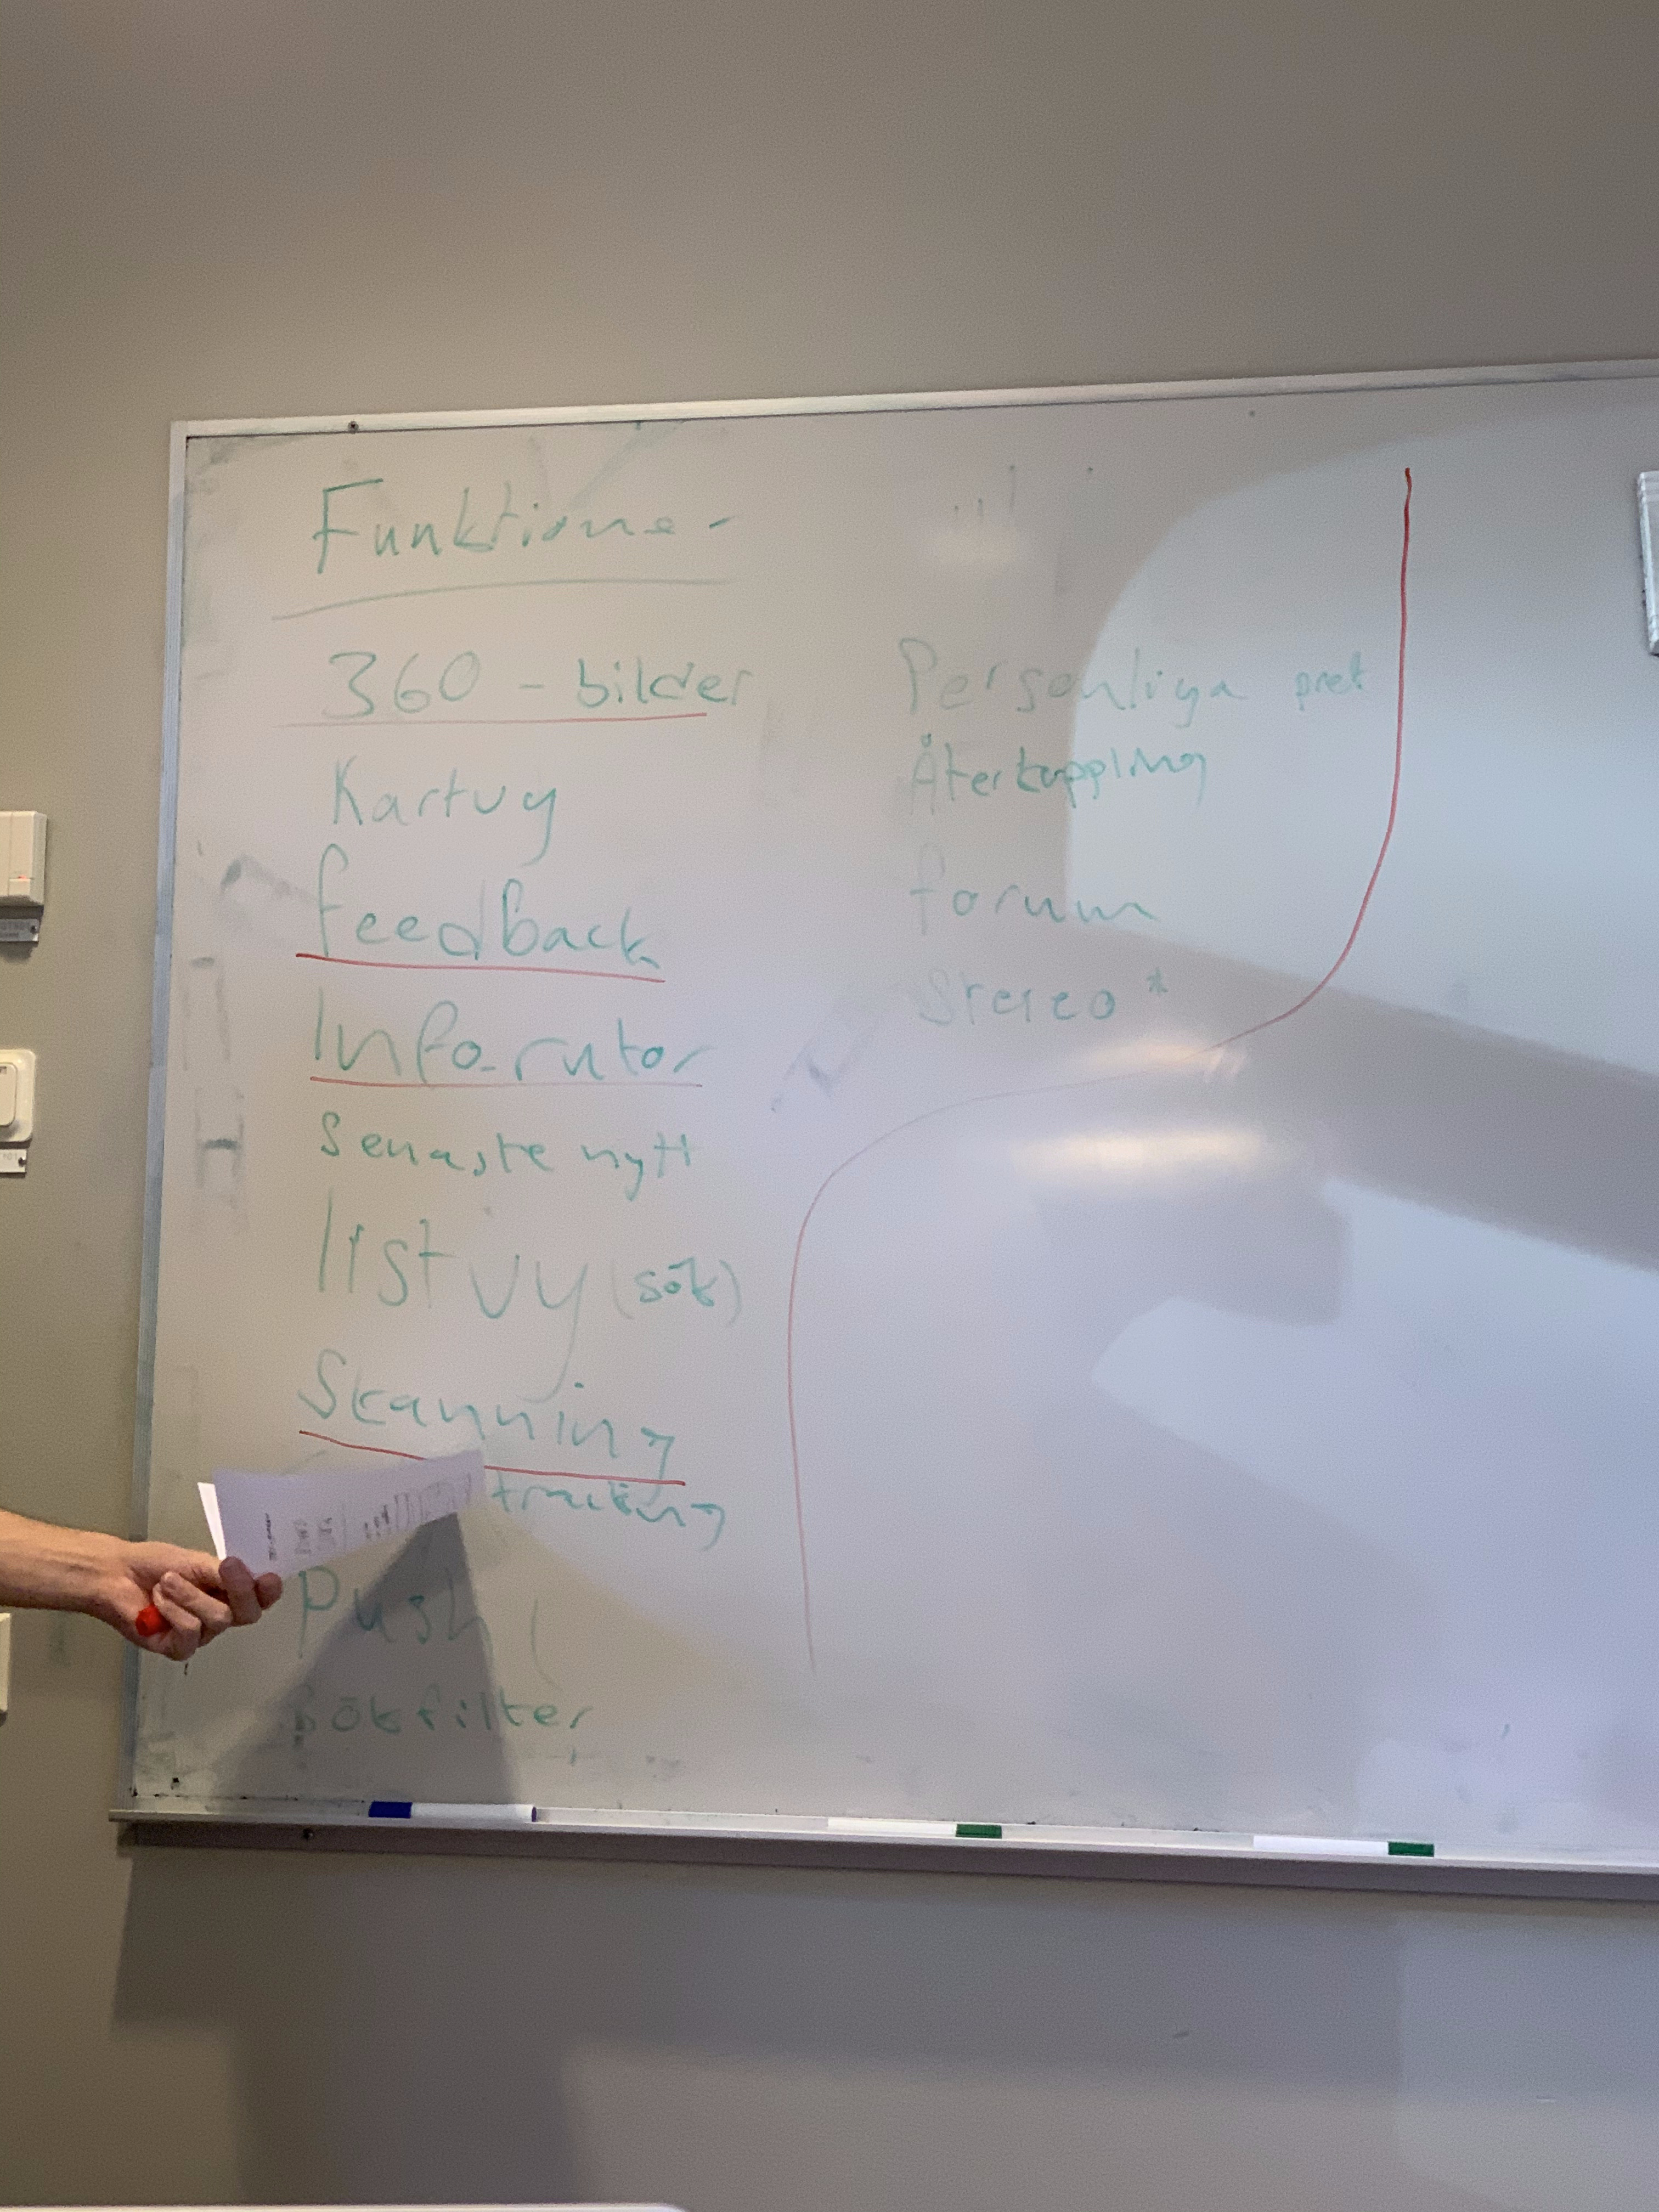 Funktioner
360 - bilder
Kartvy
feedback
Inforutor
Senaste nytt
list vy (sök)
Skanning
tracking
Push
Sökfilter
Personliga
Återkoppling
forum
Stereo *